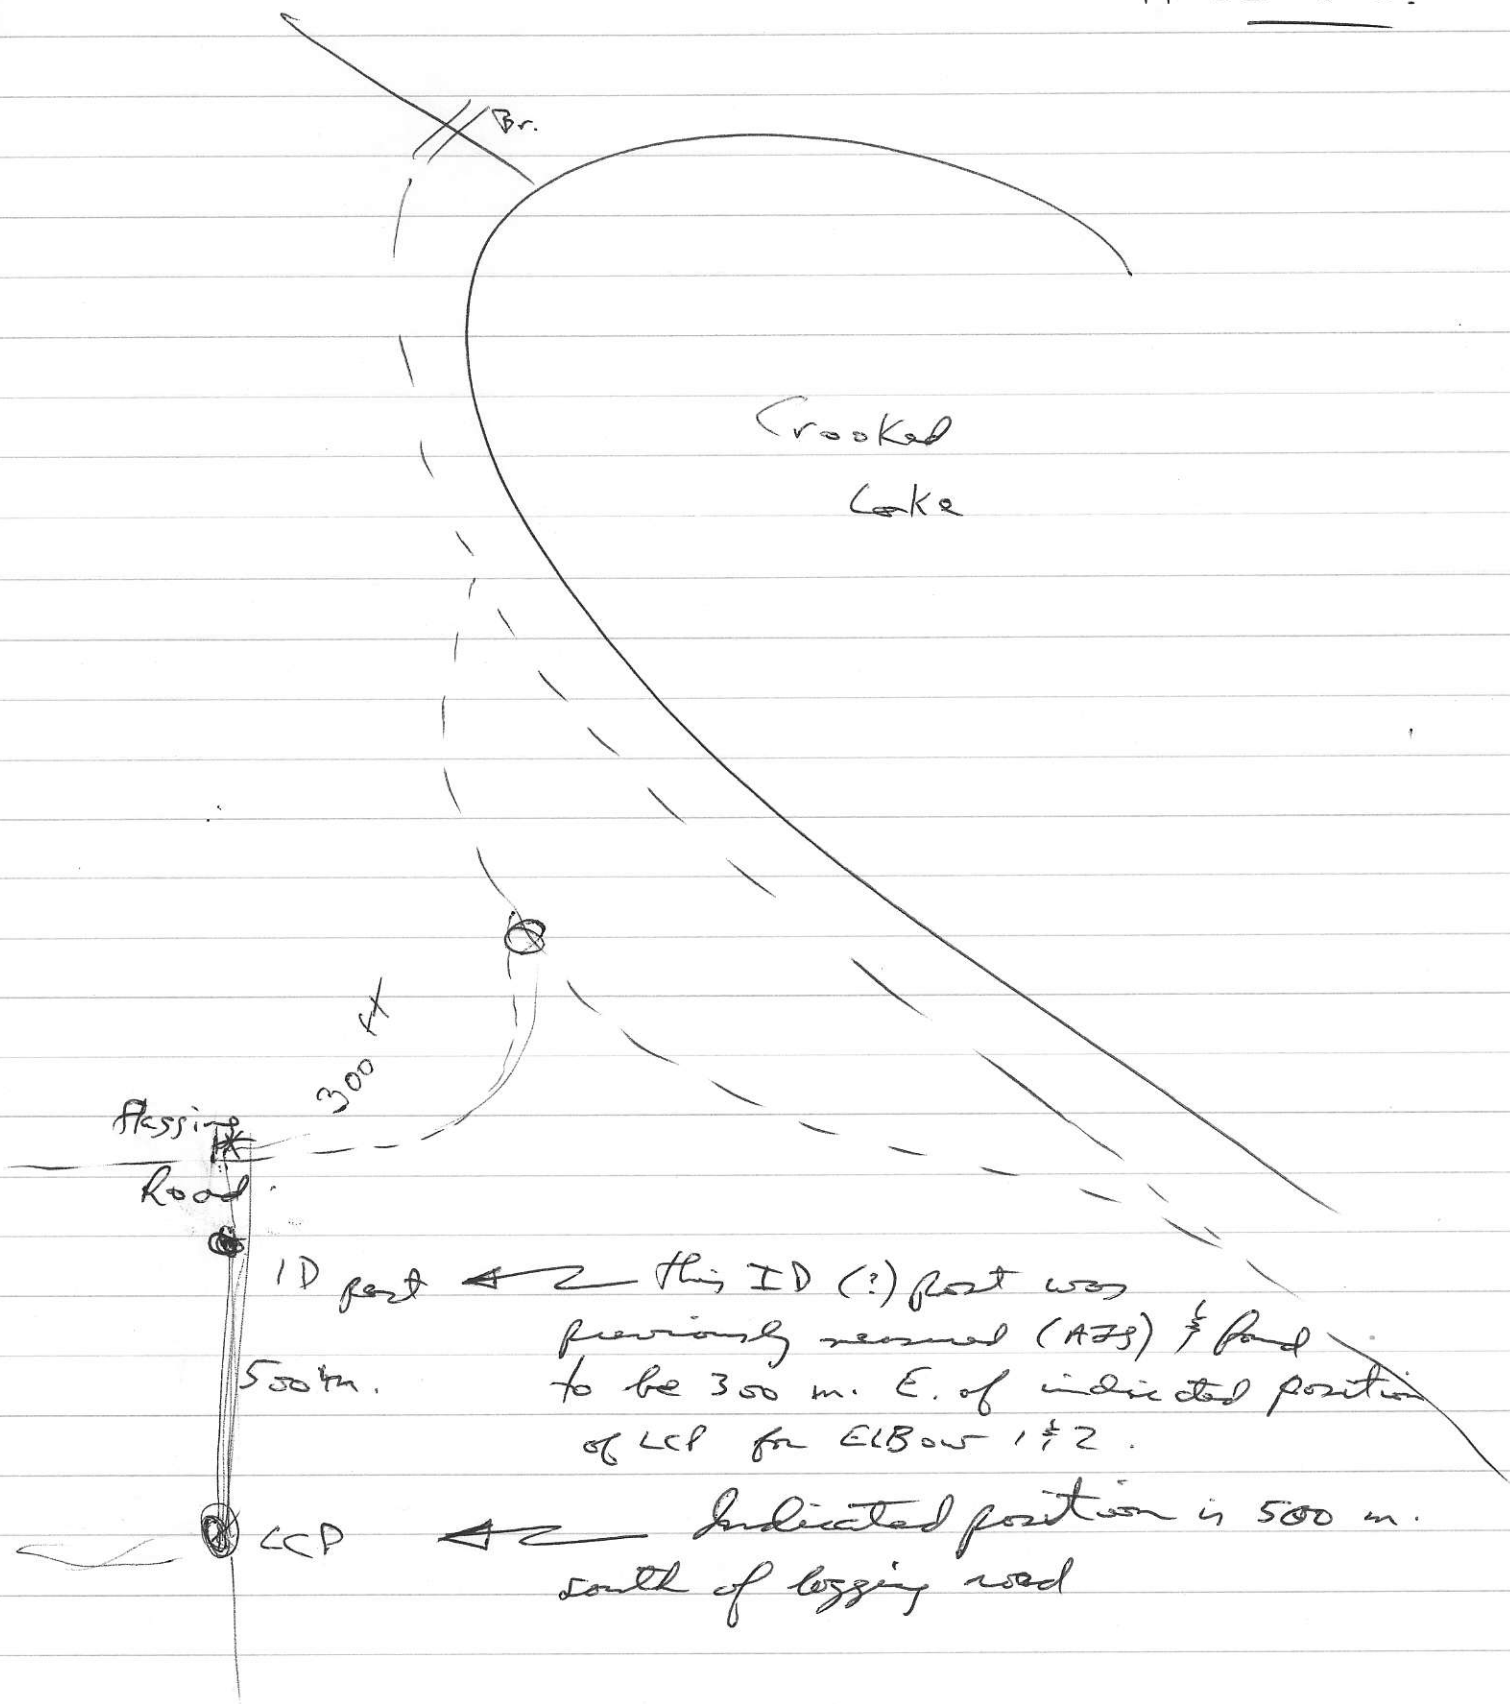 Br.
Crooked
Lake
300 ft
flagging
Road.
ID post
this ID (?) post was
previously measured (AJS) & found
to be 300 m. E. of indicated position
of LCP for ElBow 1 & 2.
500 m.
LCP
Indicated position is 500 m.
south of logging road